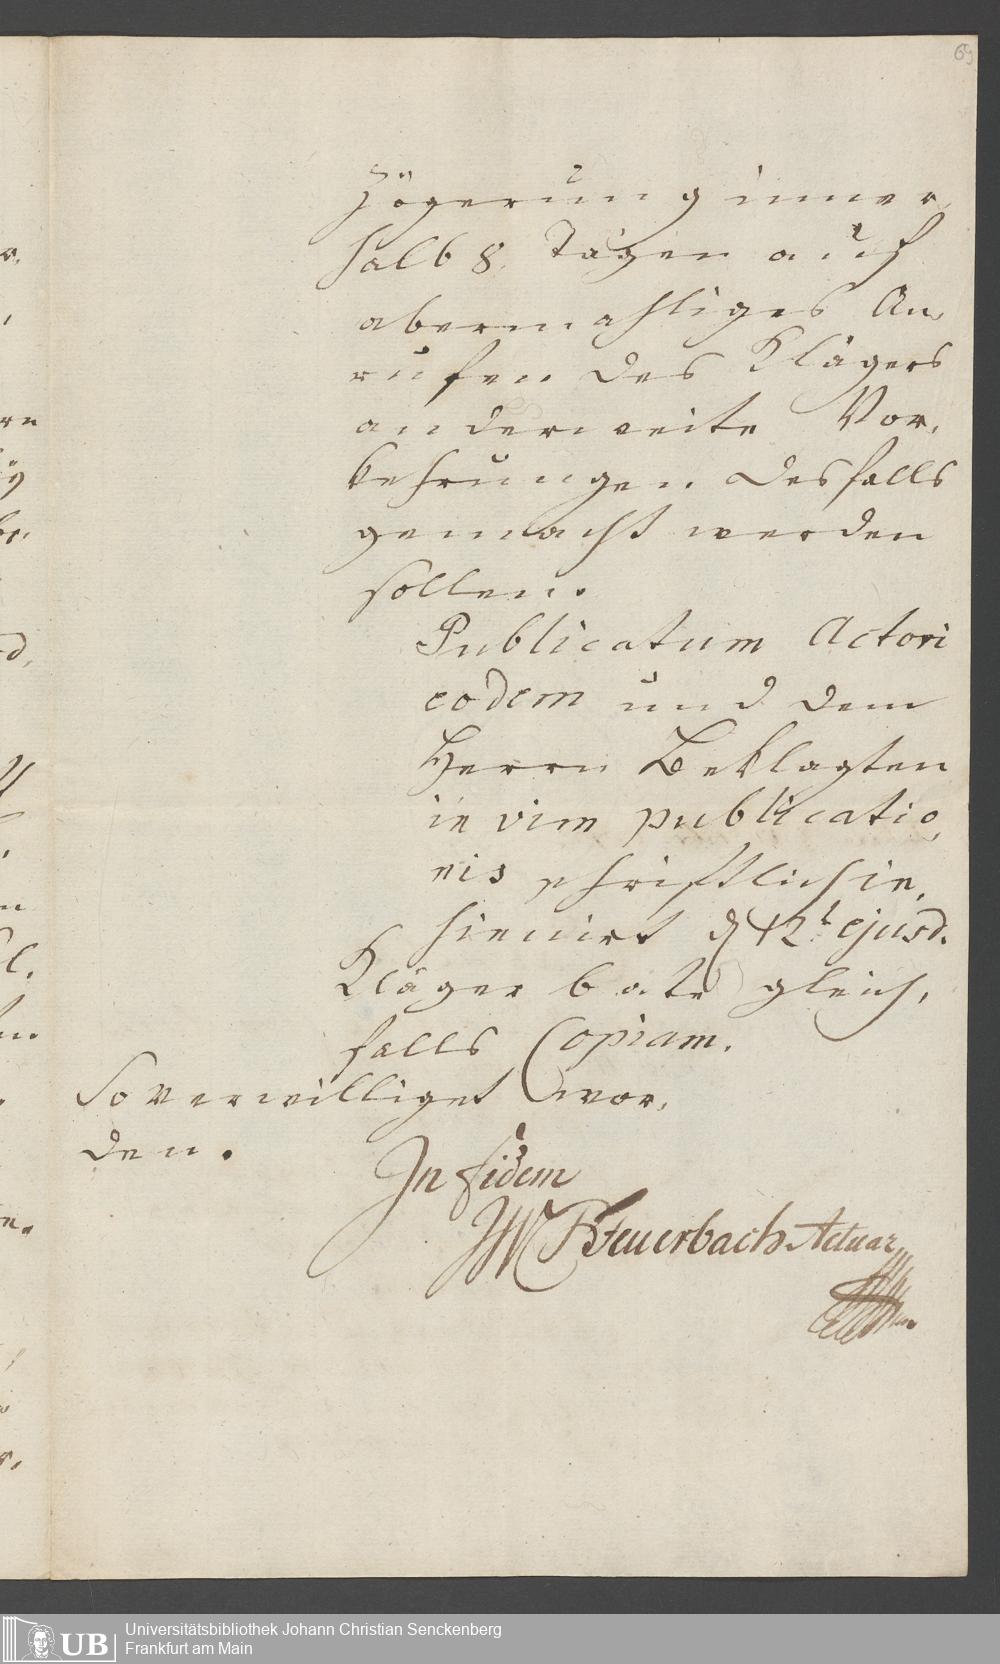 69
Zögerung inner,
halb 8. Tagen auf
abermahliges An,
rufen des Klägers
anderweite Vor,
kehrungen desfalls
gemacht werden
sollen.
Publicatum Actori
eodem und dem
Herrn Beklagten
in vim publicatio,
nis schriftlich in,
sinuirt d 12t ejusd.
Kläger bate gleich,
falls Copiam.
So verwilliget wor,
den.
In fidem
JW Feuerbach Actuar
UB Universitätsbibliothek Johann Christian Senckenberg
Frankfurt am Main